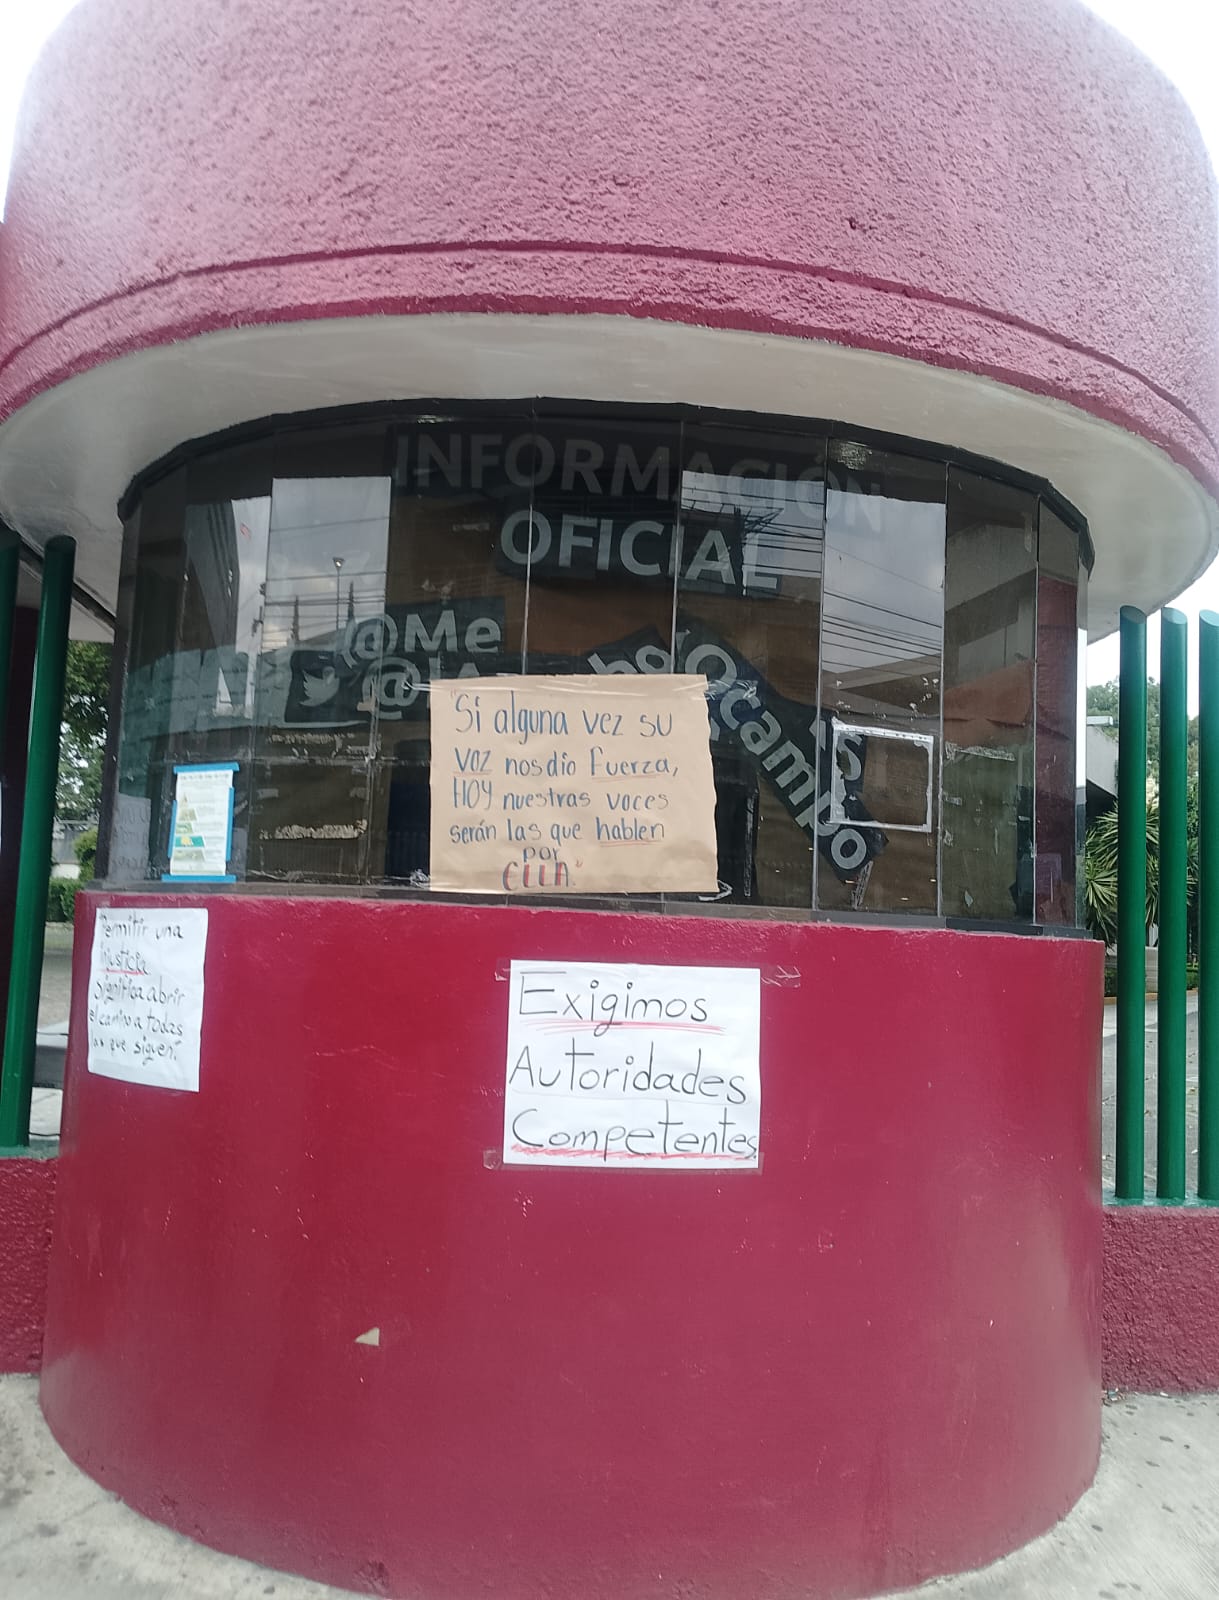 INFORMACIÓN
OFICIAL
@Me
Ocampo
"Si alguna vez su
voz nos dio fuerza,
HOY nuestras voces
serán las que hablen
por
ELLA."
Permitir una
injusticia
significa abrir
el camino a todas
las que siguen."
Exigimos
Autoridades
Competentes.